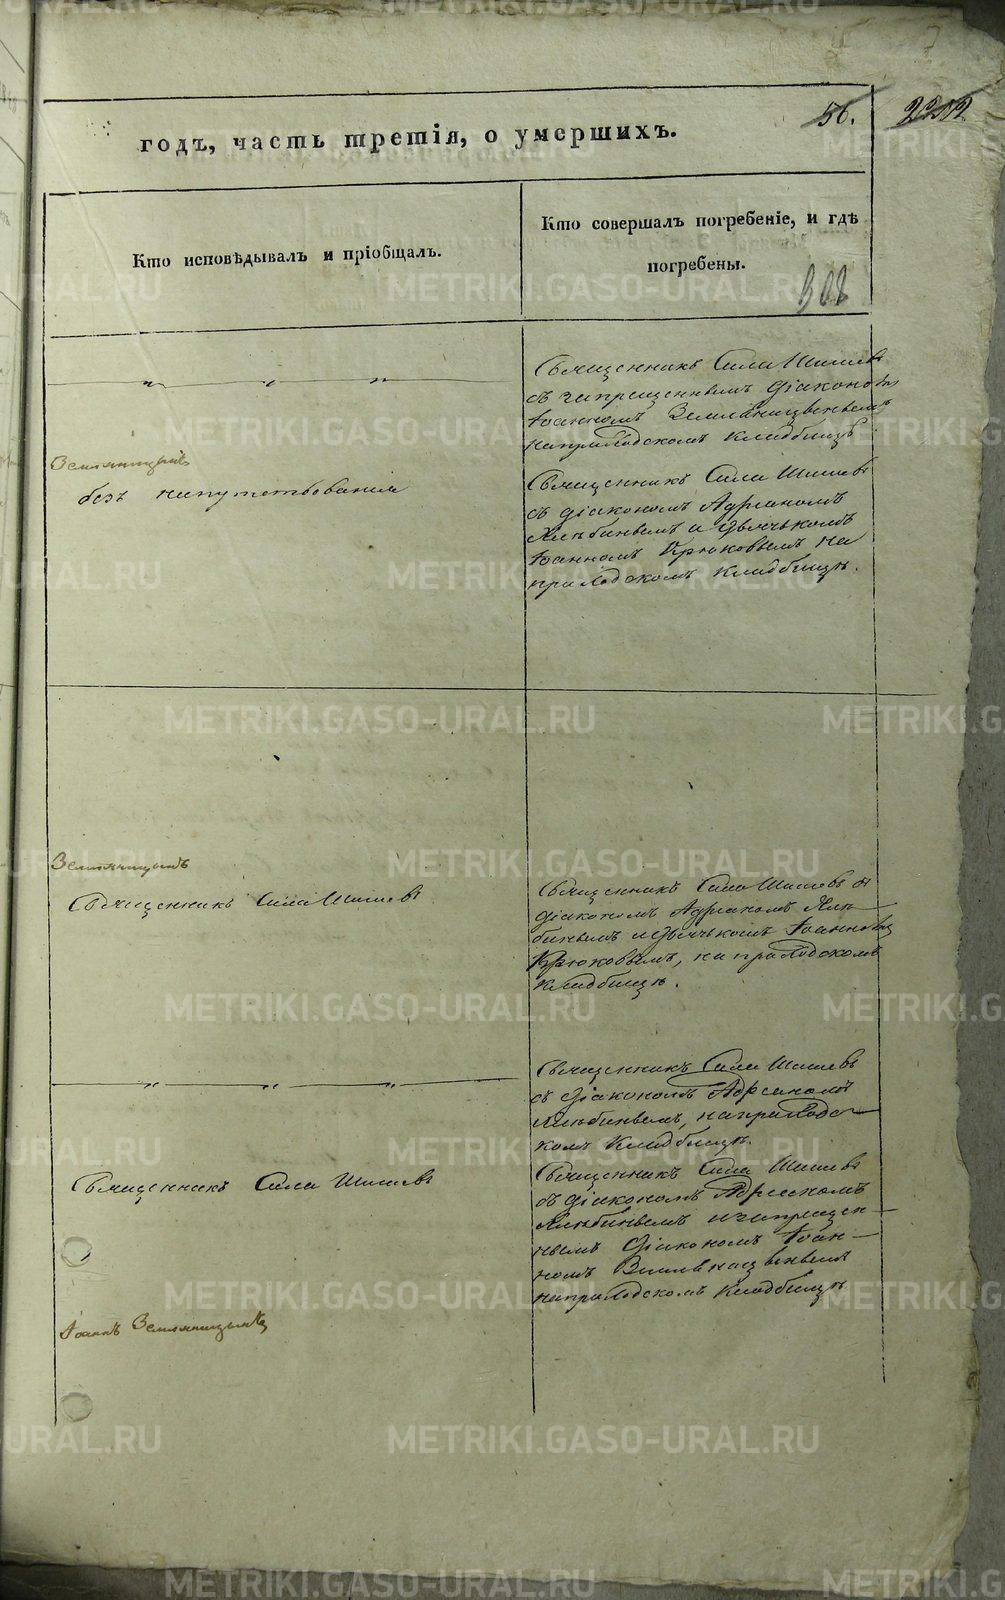 56. 2202
годъ, часть третія, о умершихъ.
Кто исповѣдывалъ и пріобщалъ.
Кто совершалъ погребеніе, и гдѣ
погребены.
308
Священникъ Сила Шишевъ
съ запрещеннымъ Діакономъ
Іоанномъ
на приходскомъ кладбищѣ
Земляницынъ
безъ напутствованія
Священникъ Сила Шишевъ
съ діакономъ Адріаномъ
и дьячькомъ
Іоанномъ Крюковымъ на
приходскомъ кладбищѣ.
Земляницынъ
Священникъ Сила Шишевъ
Священникъ Сила Шишевъ съ
діакономъ Адріаномъ
и дьячькомъ Іоанномъ
Крюковымъ, на приходскомъ
кладбищѣ.
Священникъ Сила Шишевъ
съ діакономъ Адріаномъ
на приходс-
комъ кладбищѣ.
Священникъ Сила Шишевъ
Священникъ Сила Шишевъ
съ діакономъ Адріаномъ
и запрещен-
нымъ Діакономъ Іоан-
номъ
на приходскомъ кладбищѣ
Іоаннъ Земляницынъ
METRIKI.GASO-URAL.RU